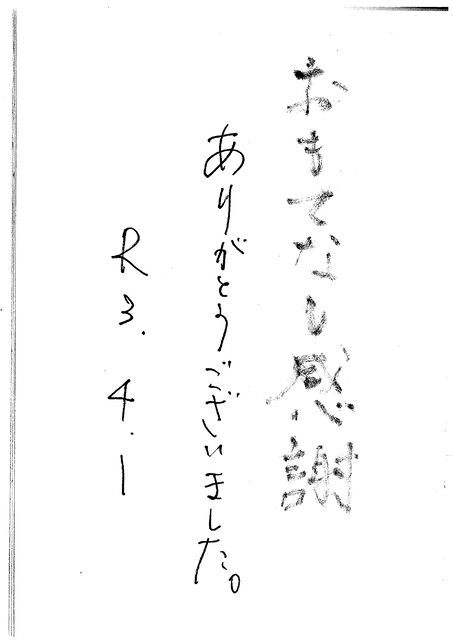 おもてなし感謝
ありがとうございました。
R3.4.1